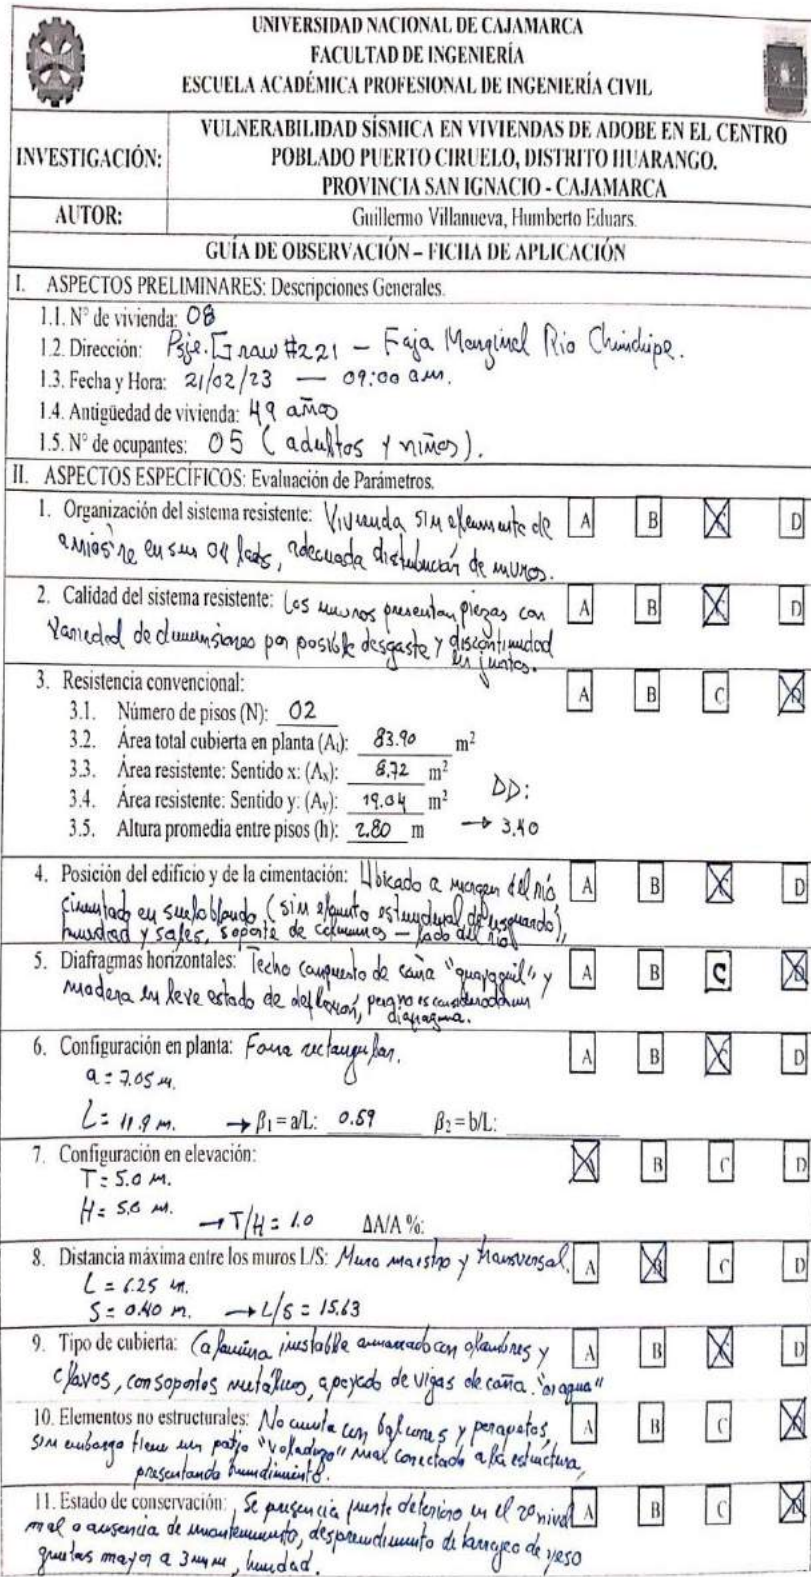 UNIVERSIDAD NACIONAL DE CAJAMARCA
FACULTAD DE INGENIERÍA
ESCUELA ACADÉMICA PROFESIONAL DE INGENIERÍA CIVIL
INVESTIGACIÓN:
VULNERABILIDAD SÍSMICA EN VIVIENDAS DE ADOBE EN EL CENTRO
POBLADO PUERTO CIRUELO, DISTRITO HUARANGO.
PROVINCIA SAN IGNACIO - CAJAMARCA
AUTOR: Guillermo Villanueva, Humberto Eduars.
GUÍA DE OBSERVACIÓN – FICHA DE APLICACIÓN
I. ASPECTOS PRELIMINARES: Descripciones Generales.
1.1. N° de vivienda: 08
1.2. Dirección: Psje. Graw #221 – Faja Marginal Rio Chinchipe.
1.3. Fecha y Hora: 21/02/23 — 09:00 am.
1.4. Antigüedad de vivienda: 49 años
1.5. N° de ocupantes: 05 (adultos y niños).
II. ASPECTOS ESPECÍFICOS: Evaluación de Parámetros.
1. Organización del sistema resistente: Vivienda sin elemento de A B C D
arriostre en sus 04 lados, adecuada distribución de muros.
2. Calidad del sistema resistente: Los muros presentan piezas con A B C D
variedad de dimensiones por posible desgaste y discontinuidad
en juntas.
3. Resistencia convencional: A B C D
3.1. Número de pisos (N): 02
3.2. Área total cubierta en planta (At): 83.90 m²
3.3. Área resistente: Sentido x: (Ax): 8.72 m²
3.4. Área resistente: Sentido y: (Ay): 19.04 m² DD:
3.5. Altura promedia entre pisos (h): 2.80 m → 3.40
4. Posición del edificio y de la cimentación: Ubicado a margen del río A B C D
cimentado en suelo blando, (sin elemento estructural de resguardo),
humedad y sales, soporte de columnas – lado del río
5. Diafragmas horizontales: Techo compuesto de caña "guayaquil" y A B C D
madera en leve estado de deflexión, pero no es considerado un
diafragma.
6. Configuración en planta: Forma rectangular. A B C D
a = 7.05 m.
L = 11.9 m. → β1 = a/L: 0.59 β2 = b/L:
7. Configuración en elevación: A B C D
T = 5.0 m.
H = 5.0 m. → T/H = 1.0 ΔA/A %:
8. Distancia máxima entre los muros L/S: Muro maestro y transversal. A B C D
L = 6.25 m.
S = 0.40 m. → L/S = 15.63
9. Tipo de cubierta: Calamina inestable amarrado con alambres y A B C D
clavos, con soportes metálicos, apoyado de vigas de caña.
10. Elementos no estructurales: No cuenta con balcones y parapetos, A B C D
sin embargo tiene un patio "volladizo" mal conectado a la estructura,
presentando hundimiento.
11. Estado de conservación: Se presencia fuerte deterioro en el 2° nivel A B C D
mal o ausencia de mantenimiento, desprendimiento de tarrajeo de yeso
grietas mayor a 3mm, humedad.